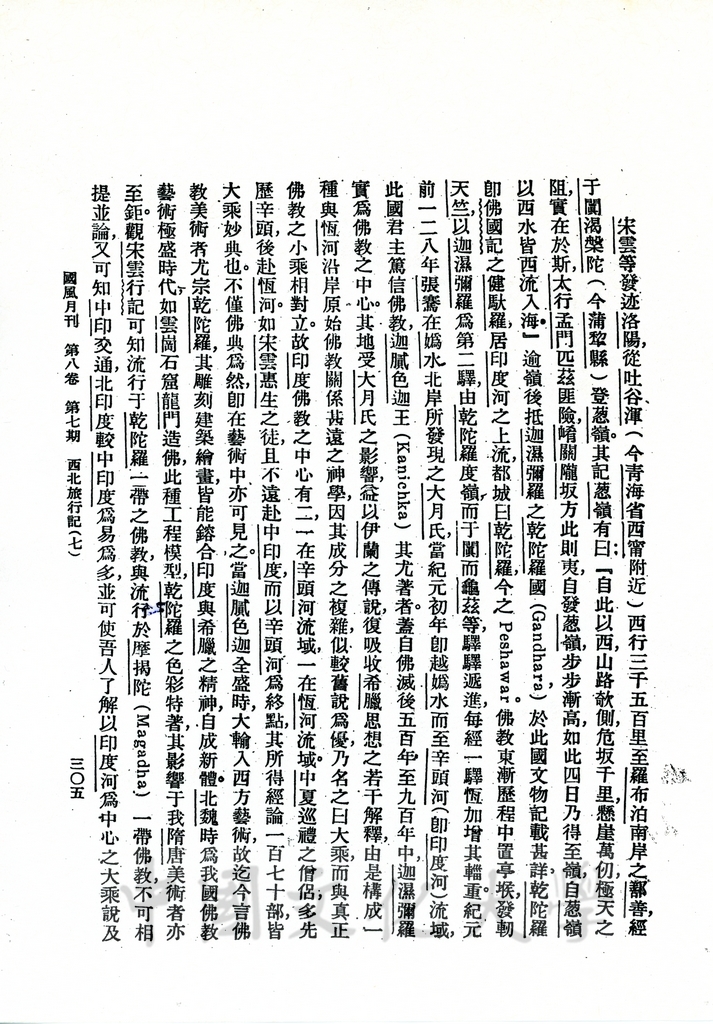 宋雲等發迹洛陽，從吐谷渾（今青海省西甯附近）西行三千五百里至羅布泊南岸之鄯善，經
于闐渴槃陀（今蒲犂縣）登葱嶺。其記葱嶺有曰：『自此以西，山路欹側，危坂千里，懸崖萬仞，極天之
阻，實在於斯。太行孟門，匹茲匪險，崤關隴坂，方此則夷。自發葱嶺，步步漸高，如此四日，乃得至嶺，自葱嶺
以西，水皆西流入海。』逾嶺後抵迦濕彌羅之乾陀羅國（Gandhara）於此國文物記載甚詳。乾陀羅
卽佛國記之健馱羅，居印度河之上流，都城曰乾陀羅，今之 Peshawar。佛教東漸歷程中，置亭堠，發軔
天竺，以迦濕彌羅爲第二驛，由乾陀羅度嶺而于闐而龜茲等驛，驛遞進，每經一驛，恆加增其輜重。紀元
前一二八年張騫在嬀水北岸所發現之大月氏，當紀元初年卽越嬀水而至辛頭河（卽印度河）流域，
此國君主篤信佛教，迦膩色迦王（Kanichka）其尤著者。蓋自佛滅後五百年至九百年中，迦濕彌羅
實爲佛教之中心。其地受大月氏之影響，益以伊蘭之傳說，復吸收希臘思想之若干解釋，由是構成一
種與恆河沿岸原始佛教關係甚遠之神學，因其成分之複雜，似較舊說爲優，乃名之曰大乘，而與真正
佛教之小乘相對立。故印度佛教之中心有二，一在辛頭河流域，一在恆河流域。中夏巡禮之僧侶，多先
歷辛頭，後赴恆河。如宋雲惠生之徒，且不遠赴中印度，而以辛頭河爲終點，其所得經論一百七十部，皆
大乘妙典也。不僅佛典爲然，卽在藝術中亦可見之。當迦膩色迦全盛時，大輸入西方藝術，故迄今言佛
教美術者尤宗乾陀羅，其雕刻建築繪畫，皆能鎔合印度與希臘之精神，自成新體。北魏時爲我國佛教
藝術極盛時代，如雲崗石窟，龍門造佛，此種工程模型，乾陀羅之色彩特著，其影響于我隋唐美術者亦
至鉅。觀宋雲行記可知流行于乾陀羅一帶之佛教，與流行於摩揭陀（Magadha）一帶佛教，不可相
提並論，又可知中印交通，北印度較中印度爲易爲多，並可使吾人了解以印度河爲中心之大乘說及
國風月刊　第八卷　第七期　西北旅行記（七）　三〇五
中國文化大學